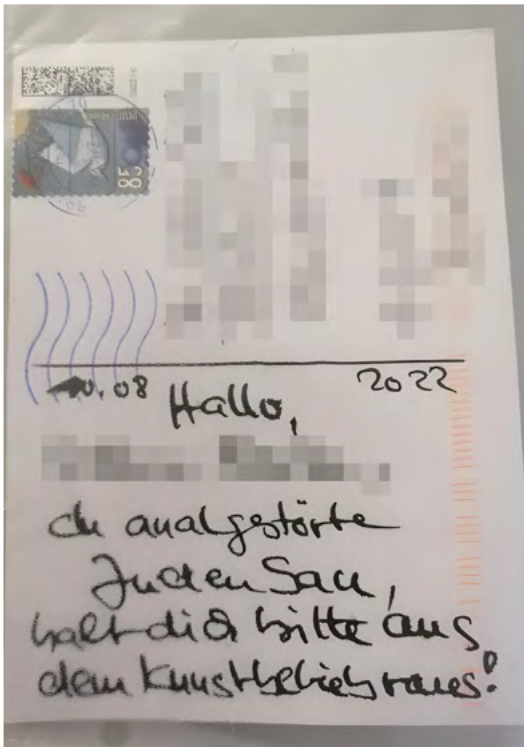 85
10.08 2022
Hallo,
du analgestörte
Juden Sau,
halt dich bitte aus
dem Kunstbetrieb raus!